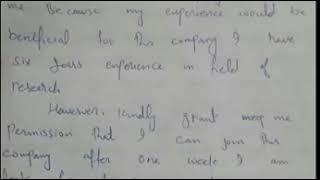 me Because my experience would be
beneficial for this company I have
six years experience in field of
research
However, kindly grant me
Permission that I can join this
company after one week I am